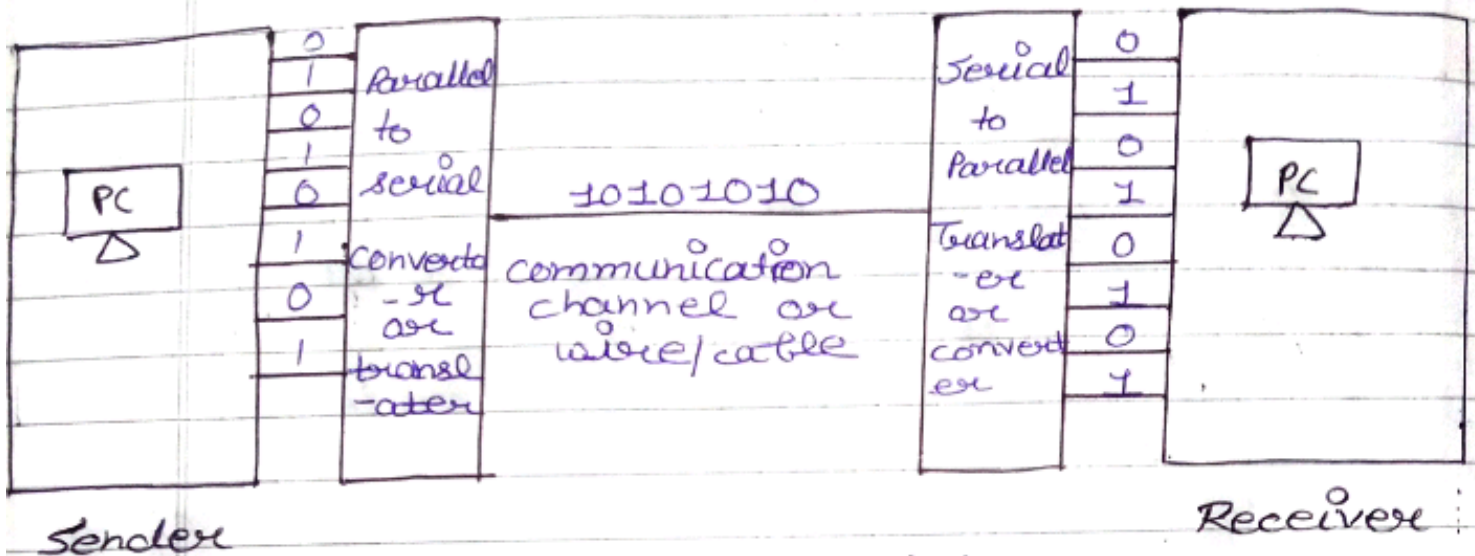 PC
0
1
0
1
0
1
0
1
Parallel
to
serial
converto
-r
or
transl
-ater
10101010
communication
channel or
wire/cable
Serial
to
Parallel
Translat
-er
or
convert
er
0
1
0
1
0
1
0
1
PC
Sender
Receiver